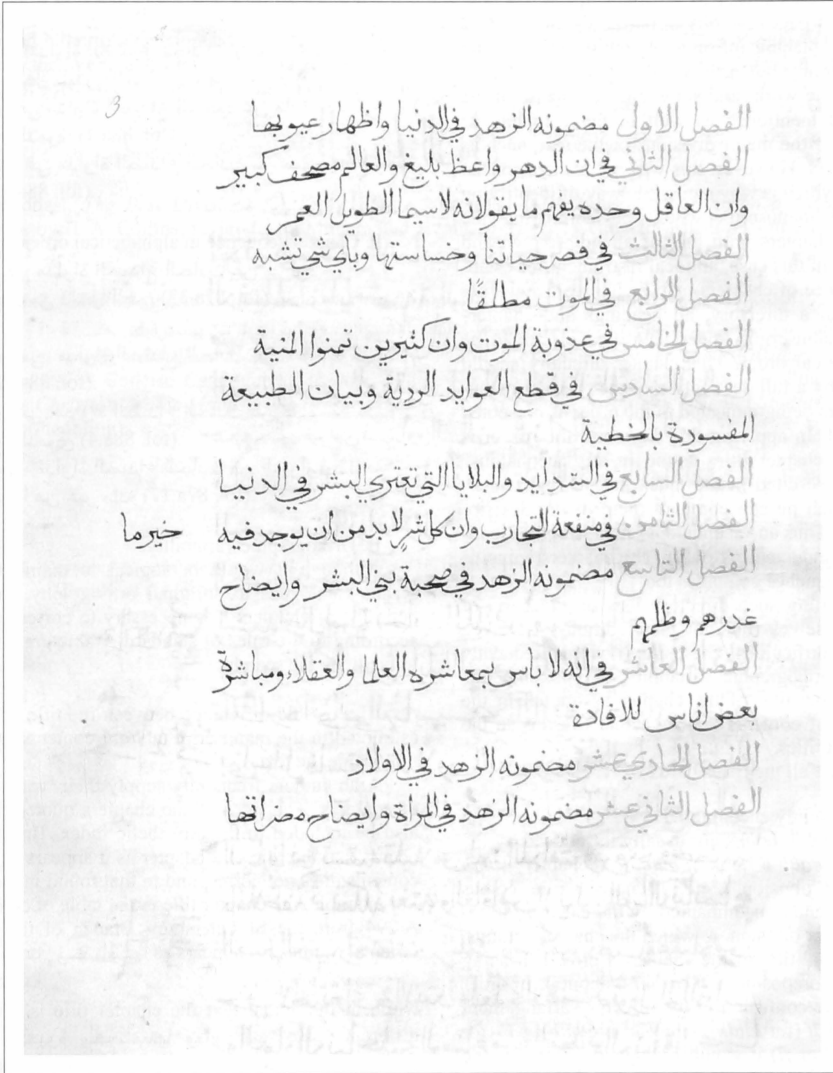 3
الفصل الاول مضمونه الزهد في الدنيا واظهار عيوبها
الفصل الثاني في ان الدهر واعظ بليغ والعالم مصحف كبير
وان العاقل وحده يفهم ما يقولانه لاسما الطويل العمر
الفصل الثالث في قصر حياتنا وخساستها وباي شي تشبه
الفصل الرابع في الموت مطلقًا
الفصل الخامس في عدوبة الموت وان كثيرين تمنوا المنية
الفصل السادس في قطع العوايد الردية وبيان الطبيعة
المفسودة بالخطية
الفصل السابع في الشدايد والبلايا التي تعتري البشر في الدنيا
الفصل الثامن في منفعة التجارب وان كل شرٍ لا بد من ان يوجد فيه خير ما
الفصل التاسع مضمونه الزهد في محبة بني البشر وايضاح
غدرهم وظلمهم
الفصل العاشر في انه لا باس بمعاشرة العلما والعقلاء ومباشرة
بعض اناس للافادة
الفصل الحادي عشر مضمونه الزهد في الاولاد
الفصل الثاني عشر مضمونه الزهد في المراة وايضاح مضراتها